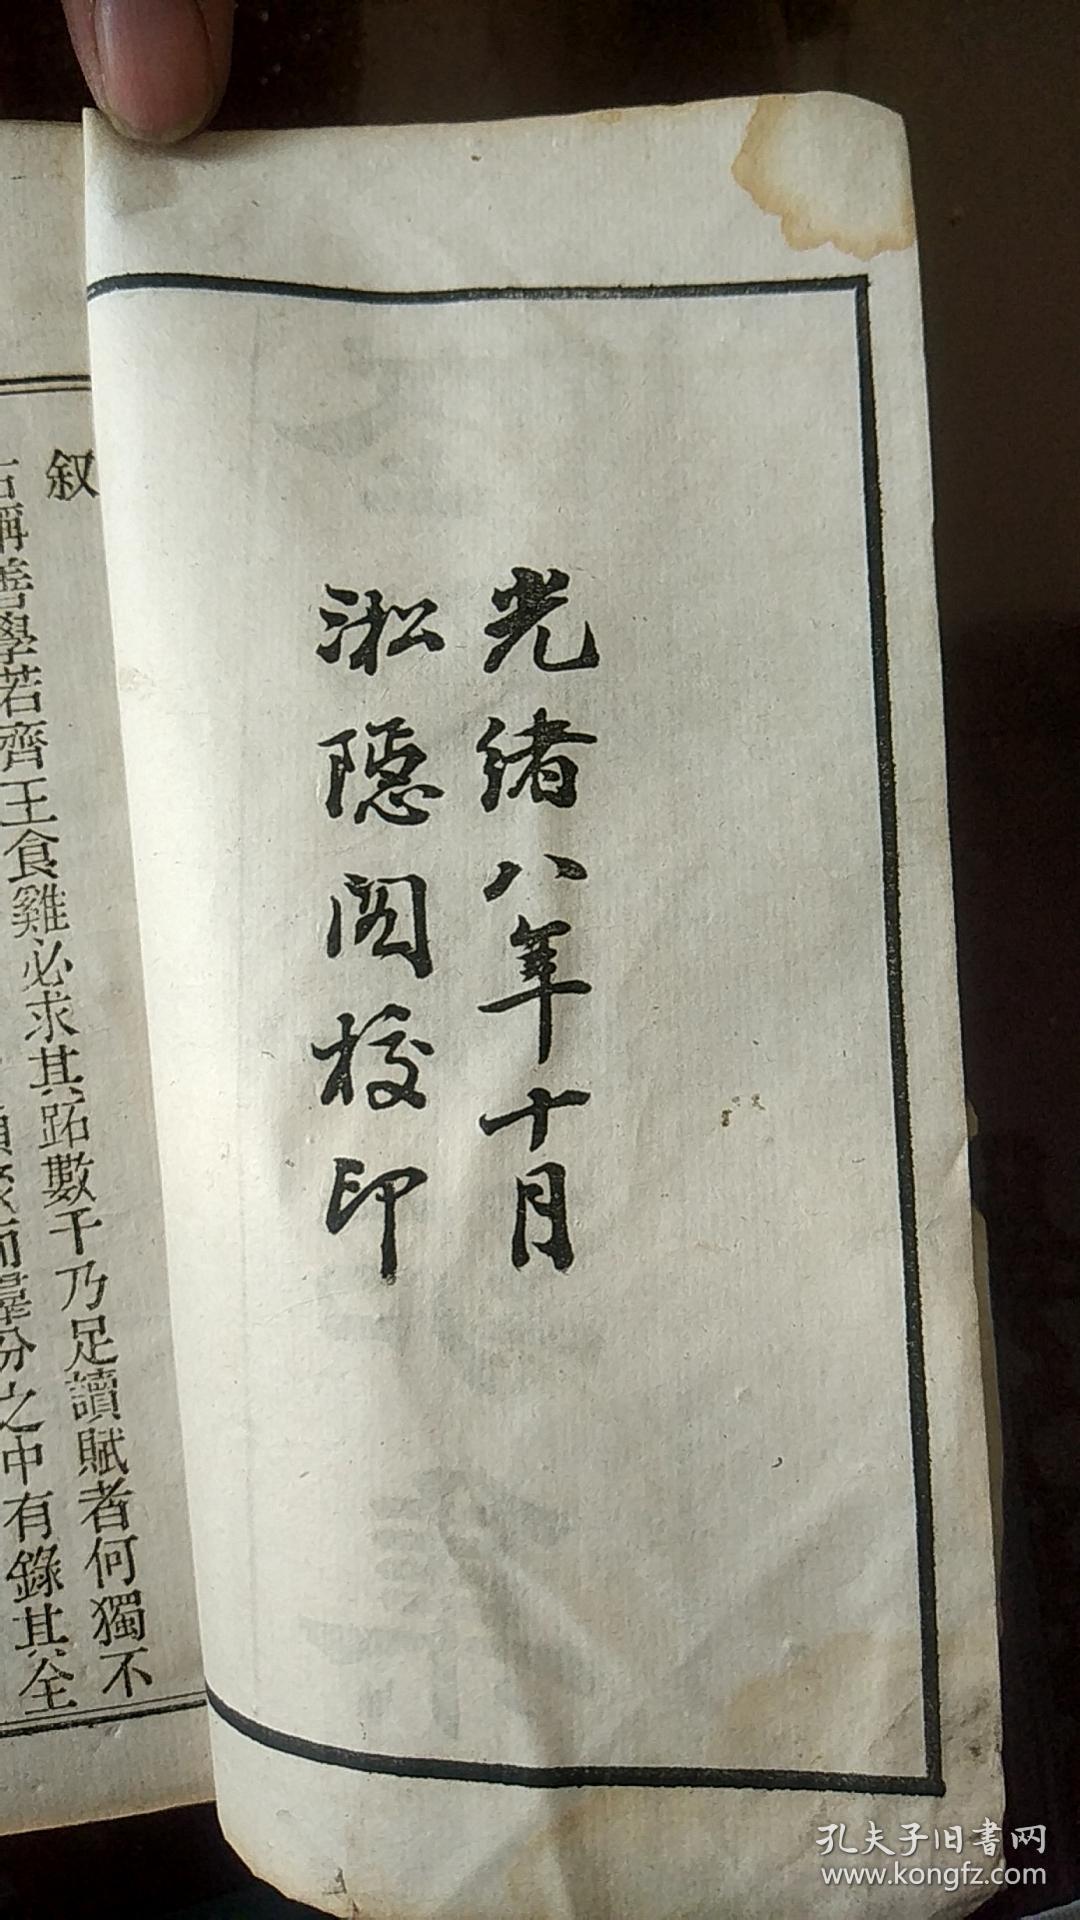 光緒八年十月
淞隱閣校印
叙
古稱善學若齊王食雞必求其跖數千乃足讀賦者何獨不
而羣分之中有錄其全
孔夫子旧書网
www.kongfz.com